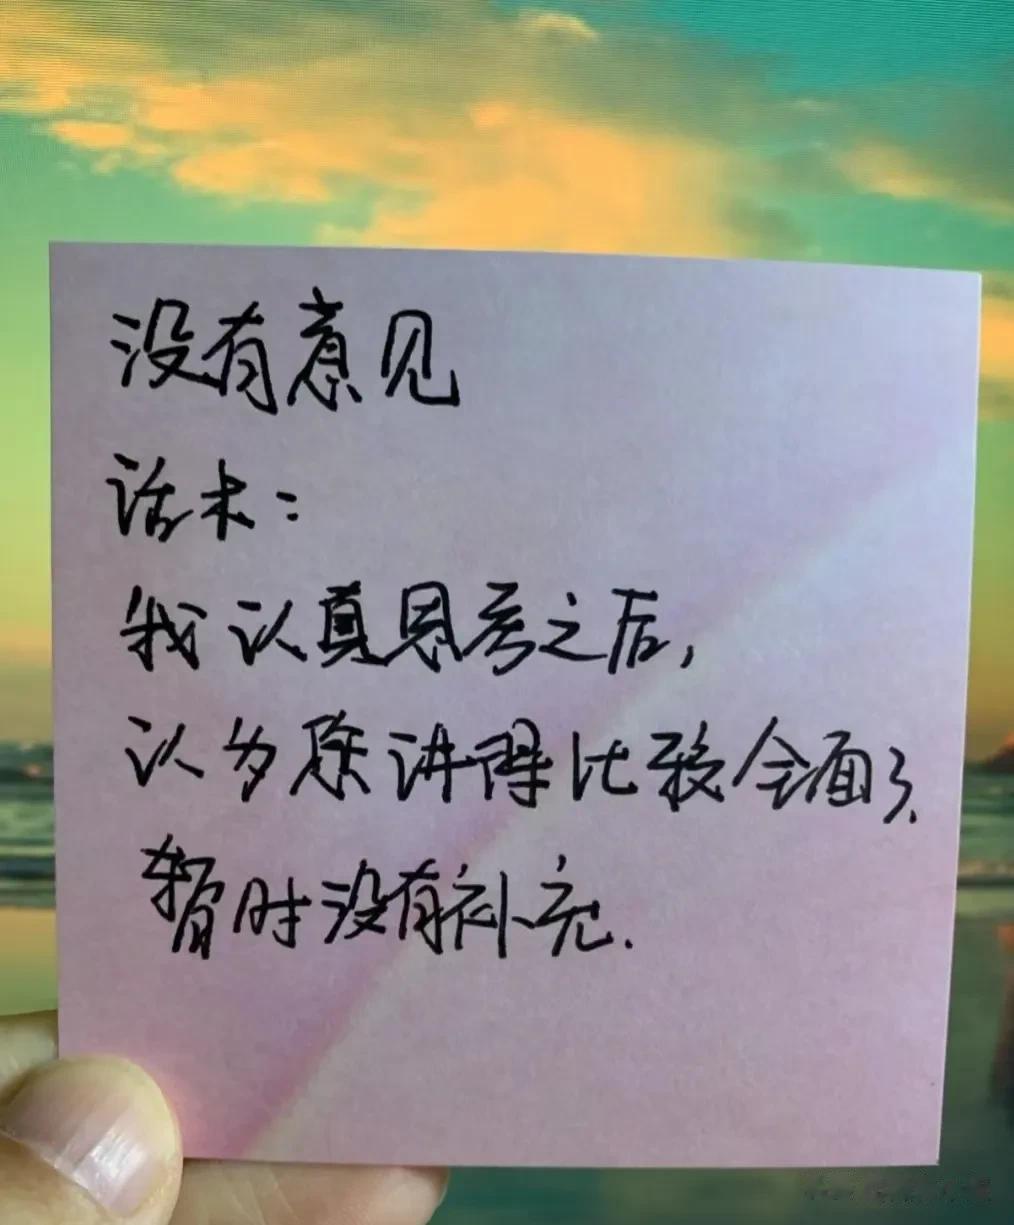 没有意见
话术：
我认真思考之后，
认为您讲得比较全面了，
暂时没有补充.